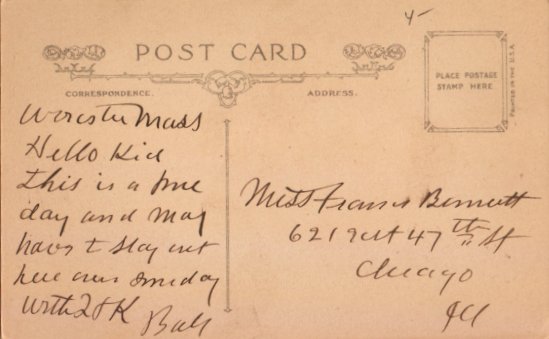 4-
POST CARD
CORRESPONDENCE.
ADDRESS.
PLACE POSTAGE
STAMP HERE
PRINTED IN THE U.S.A.
Worcster Mass
Hello Kid
this is a fine
day and may
have to stay out
here over Sunday
with
Miss Frances Bennett
621 47th St
Chicago
Ill